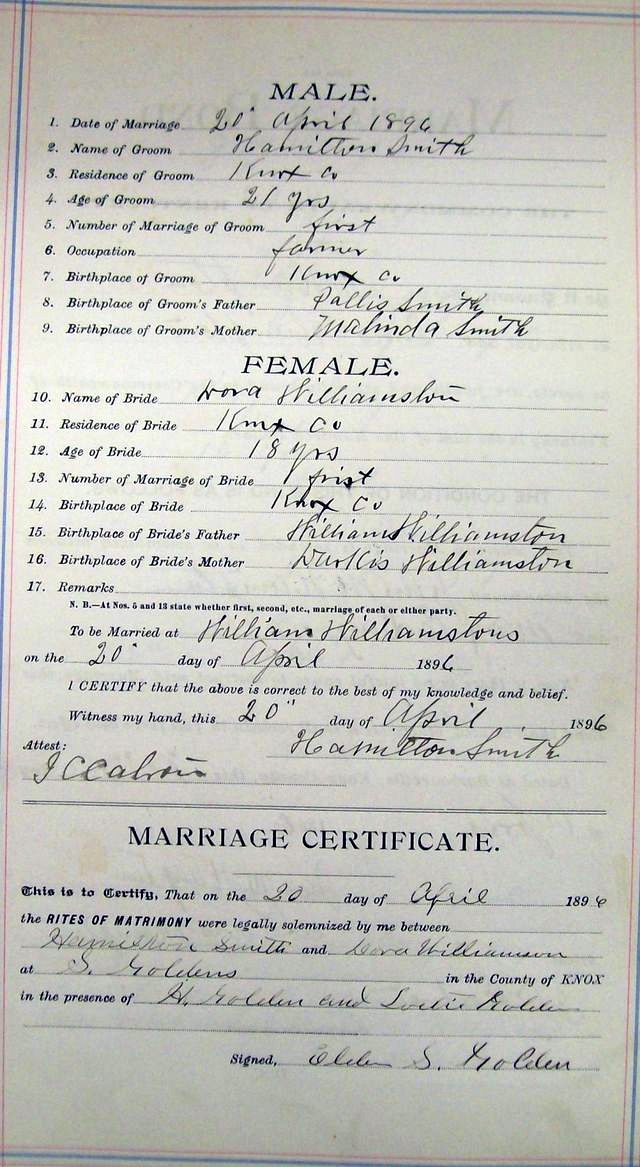 MALE.
1. Date of Marriage 20" April 1896
2. Name of Groom Hamilton Smith
3. Residence of Groom Knox Co
4. Age of Groom 21 yrs
5. Number of Marriage of Groom first
6. Occupation farmer
7. Birthplace of Groom Knox Co
8. Birthplace of Groom's Father Pallis Smith
9. Birthplace of Groom's Mother Malinda Smith
FEMALE.
10. Name of Bride Dora Williamston
11. Residence of Bride Knox Co
12. Age of Bride 18 yrs
13. Number of Marriage of Bride first
14. Birthplace of Bride Knox Co
15. Birthplace of Bride's Father William Williamston
16. Birthplace of Bride's Mother Durkis Williamston
17. Remarks
N. B.—At Nos. 5 and 13 state whether first, second, etc., marriage of each or either party.
To be Married at William Williamstons
on the 20" day of April 1896
I CERTIFY that the above is correct to the best of my knowledge and belief.
Witness my hand, this 20" day of April, 1896
Hamilton Smith
Attest:
MARRIAGE CERTIFICATE.
This is to Certify, That on the 20 day of April 1896
the RITES OF MATRIMONY were legally solemnized by me between
Hamilton Smith and Dora Williamson
at S. Goldens in the County of KNOX
in the presence of H. Golden and Golden
Signed, S. Golden